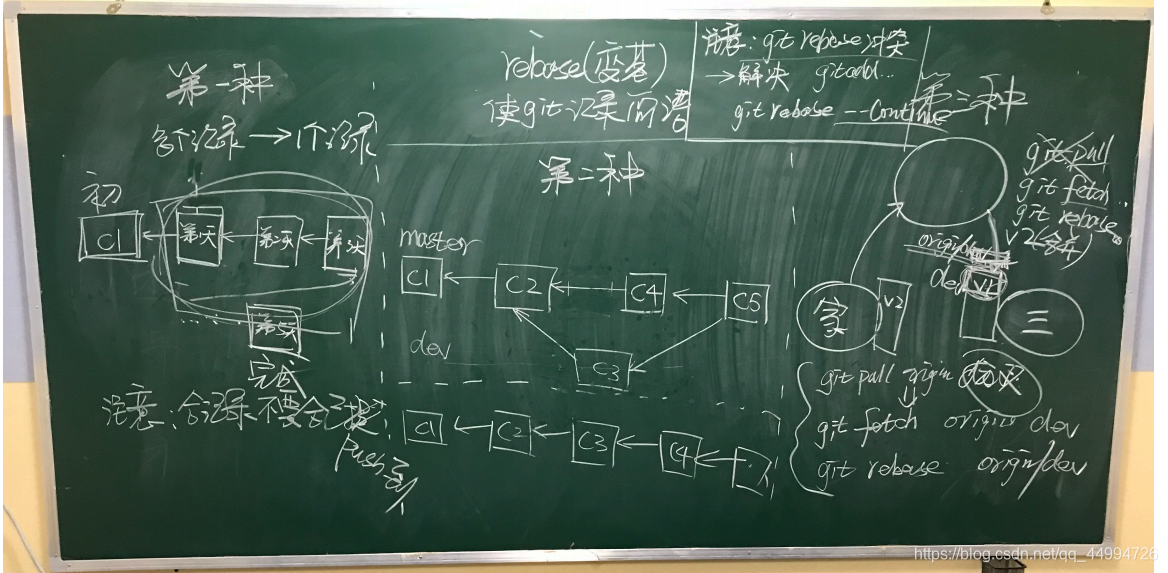 rebase(变基)
使git记录简洁
注意: git rebase 冲突
→解决 git add...
git rebase --continue
第一种
多个记录 → 1个记录
初
C1
第1天
第2天
第3次
第5天
完成
注意:合记录不要合已提
push
第二种
master
C1 C2 C4 C5
dev
C3
C1 C2 C3 C4
第三种
git pull
git fetch
git rebase
V2(合并)
origin/dev
dev
V1
家
V2
三
git pull origin
git fetch origin dev
git rebase origin/dev
https://blog.csdn.net/qq_44994726